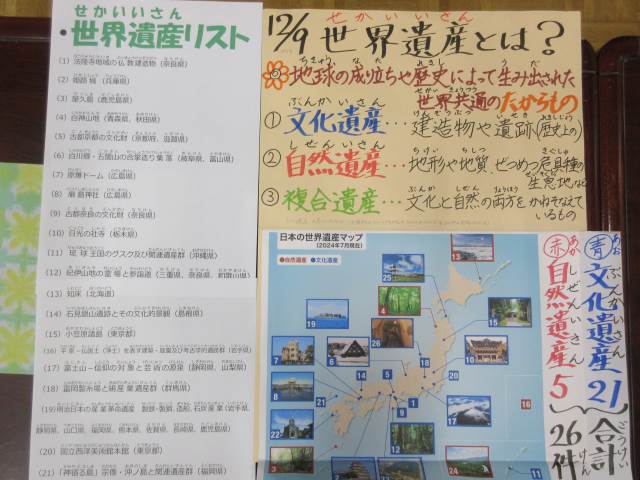 せかいいさん
・世界遺産リスト
(1) 法隆寺地域の仏教建造物（奈良県）
(2) 姫路城（兵庫県）
(3) 屋久島（鹿児島県）
(4) 白神山地（青森県、秋田県）
(5) 古都京都の文化財（京都府、滋賀県）
(6) 白川郷・五箇山の合掌造り集落（岐阜県、富山県）
(7) 原爆ドーム（広島県）
(8) 厳島神社（広島県）
(9) 古都奈良の文化財（奈良県）
(10) 日光の社寺（栃木県）
(11) 琉球王国のグスク及び関連遺産群（沖縄県）
(12) 紀伊山地の霊場と参詣道（三重県、奈良県、和歌山県）
(13) 知床（北海道）
(14) 石見銀山遺跡とその文化的景観（島根県）
(15) 小笠原諸島（東京都）
(16) 平泉－仏国土（浄土）を表す建築・庭園及び考古学的遺跡群（岩手県）
(17) 富士山－信仰の対象と芸術の源泉（静岡県、山梨県）
(18) 富岡製糸場と絹産業遺産群（群馬県）
(19) 明治日本の産業革命遺産 製鉄・製鋼、造船、石炭産業（岩手県、
静岡県、山口県、福岡県、熊本県、佐賀県、長崎県、鹿児島県）
(20) 国立西洋美術館本館（東京都）
(21)「神宿る島」宗像・沖ノ島と関連遺産群（福岡県）
せかいいさん
12/9 世界遺産とは？
ちきゅう な た れきし う だ
◎地球の成り立ちや歴史によって生み出された
せかいきょうつう
世界共通のたからもの
ぶんかいさん
①文化遺産…建造物や遺跡(歴史上の)
しぜんいさん
②自然遺産…地形や地質、ぜつめつ危具種の
生息地など
③複合遺産…文化と自然の両方をかねそなえて
いるもの
日本の世界遺産マップ
（2024年7月現在）
●自然遺産 ●文化遺産
13
25
4
19
6
10
7
14
16
8
18
22
9
1
17
15
2
5
20
21
12
23
3
24
11
青 文化遺産 21
あお ぶんかいさん
赤 自然遺産 5
あか しぜんいさん
合計
ごうけい
26件
けん